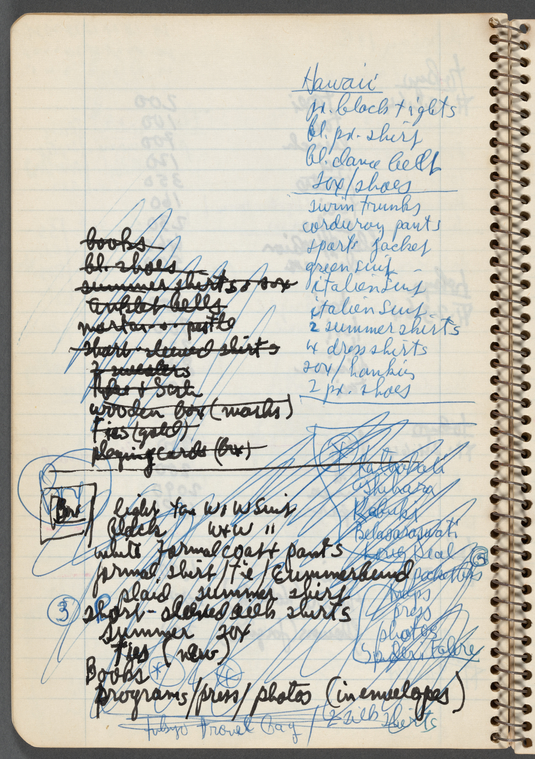 Hawaii
pr. black tights
bl. pr. shirt
bl. dance belt
sox/shoes
swim trunks
corduroy pants
sport jacket
green suit
italian suit
italian suit
2 summer shirts
4 dress shirts
sox/hankies
2 pr. shoes
books
bl. shoes
summer shirts & sox
anklet bells
mortar & pestle
short-sleeved shirts
sweaters
wooden box (masks)
Ties (gold)
playing cards (box)
Box
light tan W+W Suit
black W+W "
white formal coat + pants
formal shirt/tie/Cummerbund
plaid summer shirt
short-sleeved silk shirts
summer sox
Ties (new)
Books
programs/press/photos (in envelopes)
Kathakali
Ashihara
Kabuki
Balasaraswati
3
5
press
photos
Tokyo Travel Bag / 2 silk shirts